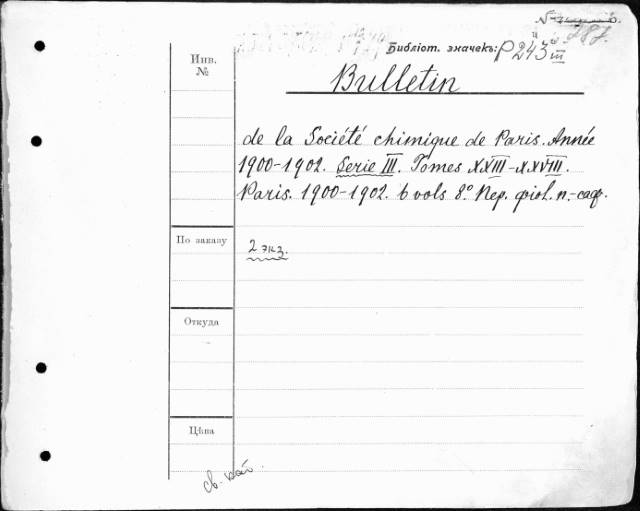 287.
Библіот. значекъ: P 243 III
Инв.
№
Bulletin
de la Société chimique de Paris. Année
1900-1902. Serie III. Tomes XXIII-XXVIII.
Paris. 1900-1902. 6 vols 8º Пер. фіол. п.-саф.
По заказу
2 экз.
Откуда
Цѣна
св. кат.